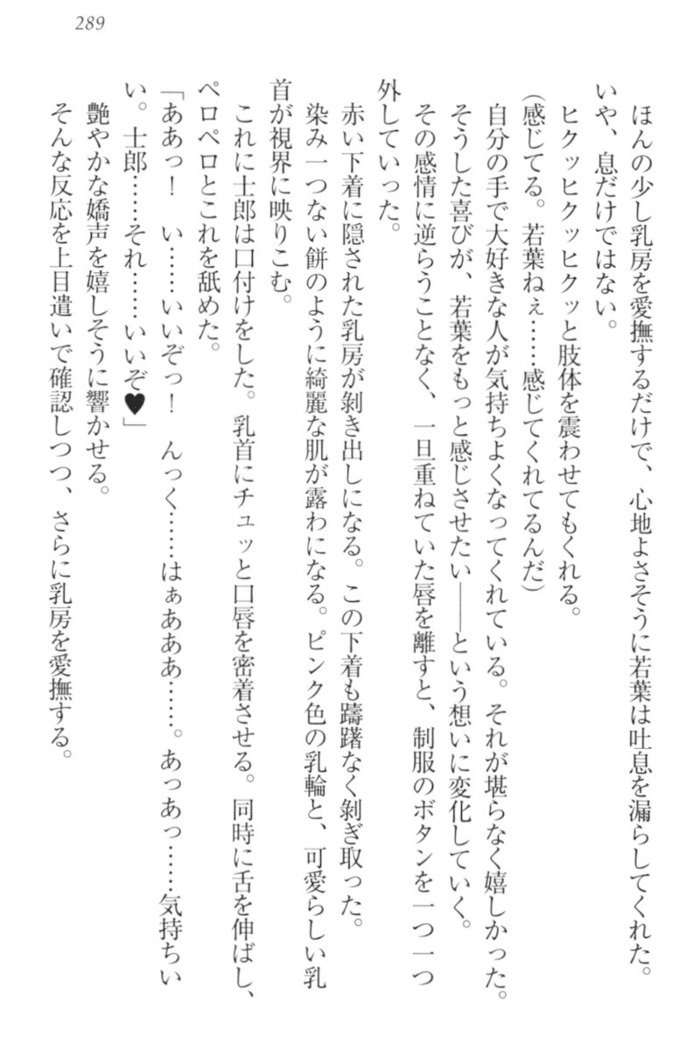 289
ほんの少し乳房を愛撫するだけで、心地よさそうに若葉は吐息を漏らしてくれた。
いや、息だけではない。
ヒクッヒクッヒクッと肢体を震わせてもくれる。
（感じてる。若葉ねぇ……感じてくれてるんだ）
自分の手で大好きな人が気持ちよくなってくれている。それが堪らなく嬉しかった。
そうした喜びが、若葉をもっと感じさせたい――という想いに変化していく。
その感情に逆らうことなく、一旦重ねていた唇を離すと、制服のボタンを一つ一つ
外していった。
赤い下着に隠された乳房が剥き出しになる。この下着も躊躇なく剥ぎ取った。
染み一つない餅のように綺麗な肌が露わになる。ピンク色の乳輪と、可愛らしい乳
首が視界に映りこむ。
これに士郎は口付けをした。乳首にチュッと口唇を密着させる。同時に舌を伸ばし、
ペロペロとこれを舐めた。
「ああっ！　い……いいぞっ！　んっく……はぁあああ……。あっあっ……気持ちい
い。士郎……それ……いいぞ♥」
艶やかな嬌声を嬉しそうに響かせる。
そんな反応を上目遣いで確認しつつ、さらに乳房を愛撫する。